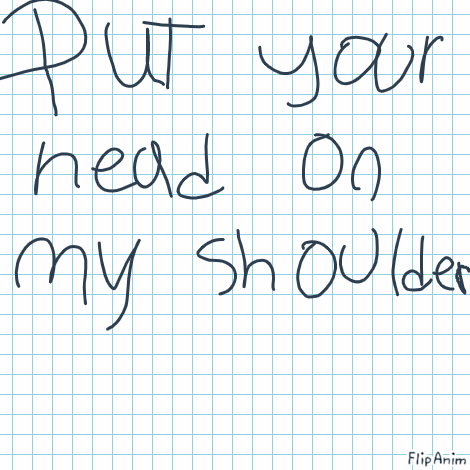 Put your
head on
my shoulder
FlipAnim